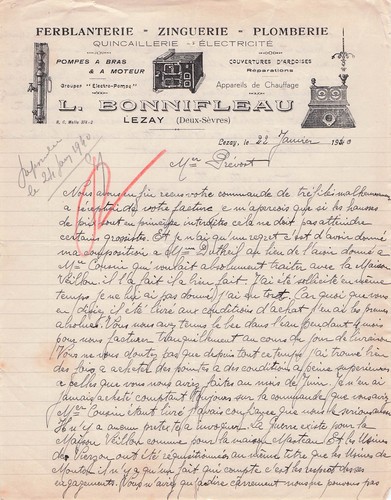 FERBLANTERIE - ZINGUERIE - PLOMBERIE
QUINCAILLERIE - ÉLECTRICITÉ
POMPES A BRAS
& A MOTEUR
Groupes "Electro-Pompe"
COUVERTURES D'ARDOISES
Réparations
Appareils de Chauffage
L. BONNIFLEAU
LEZAY (Deux-Sèvres)
R. C. Melle
Lezay, le 22 Janvier 1940
le 24 Janv 1940
Mr Prévost
Nous avons enfin reçu votre commande de tréfilés malheureusement
votre facture, je m'aperçois que si les hausses
de prix sont en principe interdites cela ne doit pas atteindre
certains grossistes. Et je n'ai qu'un regret c'est d'avoir donné
ma composition à Mr Dutheil au lieu de l'avoir donné à
Mr Cousin qui voulait absolument traiter avec la Maison
Veillon il l'a fait il a bien fait. J'ai été sollicité en même
temps je ne lui ai pas donné j'ai eu tort. Car quoi que vous
en disiez il a été livré aux conditions d'achat j'en ai les preuves
absolues. Vous nous avez tenu le bec dans l'eau pendant 4 mois
pour nous facturer tranquillement au cours du jour de livraison
Vous ne vous doutez pas que depuis tout ce temps j'ai trouvé bien
des fois à acheter des pointes à des conditions à peine supérieures
à celles que vous nous aviez faites au mois de Juin. Je n'en ai
jamais acheté comptant toujours sur la commande que vous avez
Mr Cousin étant livré j'avais confiance que nous le serions aussi
Il n'y a aucun prétexte à invoquer. La guerre existe pour la
Maison Veillon comme pour la maison et les Usines
de Vierzon ont été réquisitionnées au même titre que les Usines de
Mouton il n'y a qu'un fait qui compte c'est le respect de ses
engagements. Vous n'aviez qu'à dire carrément nous ne pouvons pas